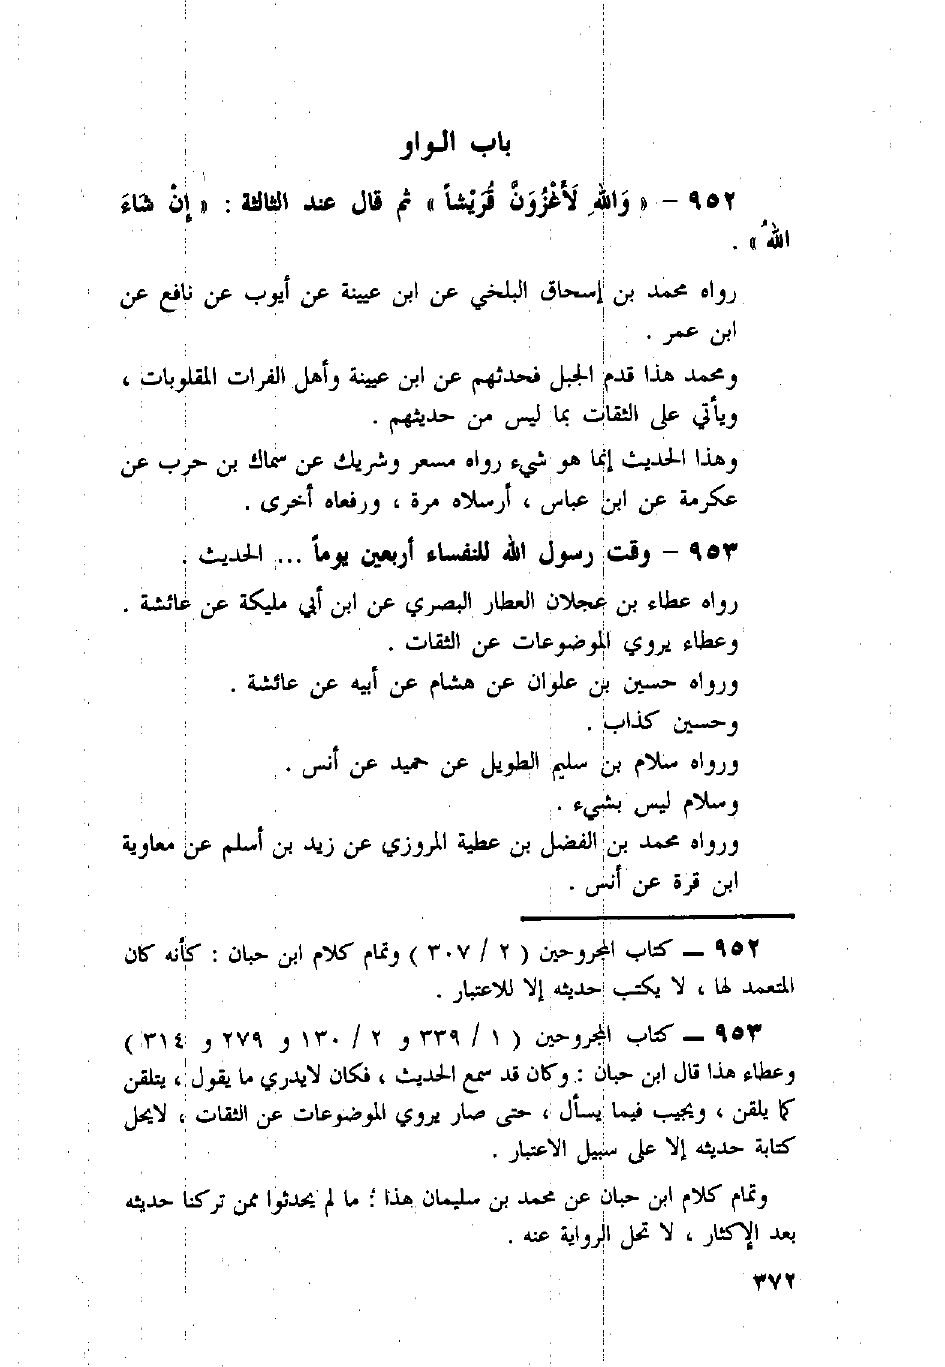 باب الواو
٩٥٢ – « وَاللهِ لَأَغْزُوَنَّ قُرَيْشاً » ثم قال عند الثالثة : « إِنْ شَاءَ
اللهُ » .
رواه محمد بن إسحاق البلخي عن ابن عيينة عن أيوب عن نافع عن
ابن عمر .
ومحمد هذا قدم الجبل فحدثهم عن ابن عيينة وأهل الفرات المقلوبات ،
ويأتي على الثقات بما ليس من حديثهم .
وهذا الحديث إنما هو شيء رواه مسعر وشريك عن سماك بن حرب عن
عكرمة عن ابن عباس ، أرسلاه مرة ، ورفعاه أخرى .
٩٥٣ – وقت رسول الله للنفساء أربعين يوماً ... الحديث .
رواه عطاء بن عجلان العطار البصري عن ابن أبي مليكة عن عائشة .
وعطاء يروي الموضوعات عن الثقات .
ورواه حسين بن علوان عن هشام عن أبيه عن عائشة .
وحسين كذاب .
ورواه سلام بن سليم الطويل عن حميد عن أنس .
وسلام ليس بشيء .
ورواه محمد بن الفضل بن عطية المروزي عن زيد بن أسلم عن معاوية
ابن قرة عن أنس .
٩٥٢ – كتاب المجروحين ( ٢ / ٣٠٧ ) وتمام كلام ابن حبان : كأنه كان
المتعمد لها ، لا يكتب حديثه إلا للاعتبار .
٩٥٣ – كتاب المجروحين ( ١ / ٣٣٩ و ٢ / ١٣٠ و ٢٧٩ و ٣١٤ )
وعطاء هذا قال ابن حبان : وكان قد سمع الحديث ، فكان لايدري ما يقول ، يتلقن
كما يلقن ، ويجيب فيما يسأل ، حتى صار يروي الموضوعات عن الثقات ، لايحل
كتابة حديثه إلا على سبيل الاعتبار .
وتمام كلام ابن حبان عن محمد بن سليمان هذا : ما لم يحدثوا ممن تركنا حديثه
بعد الإكثار ، لا تحل الرواية عنه .
٣٧٢